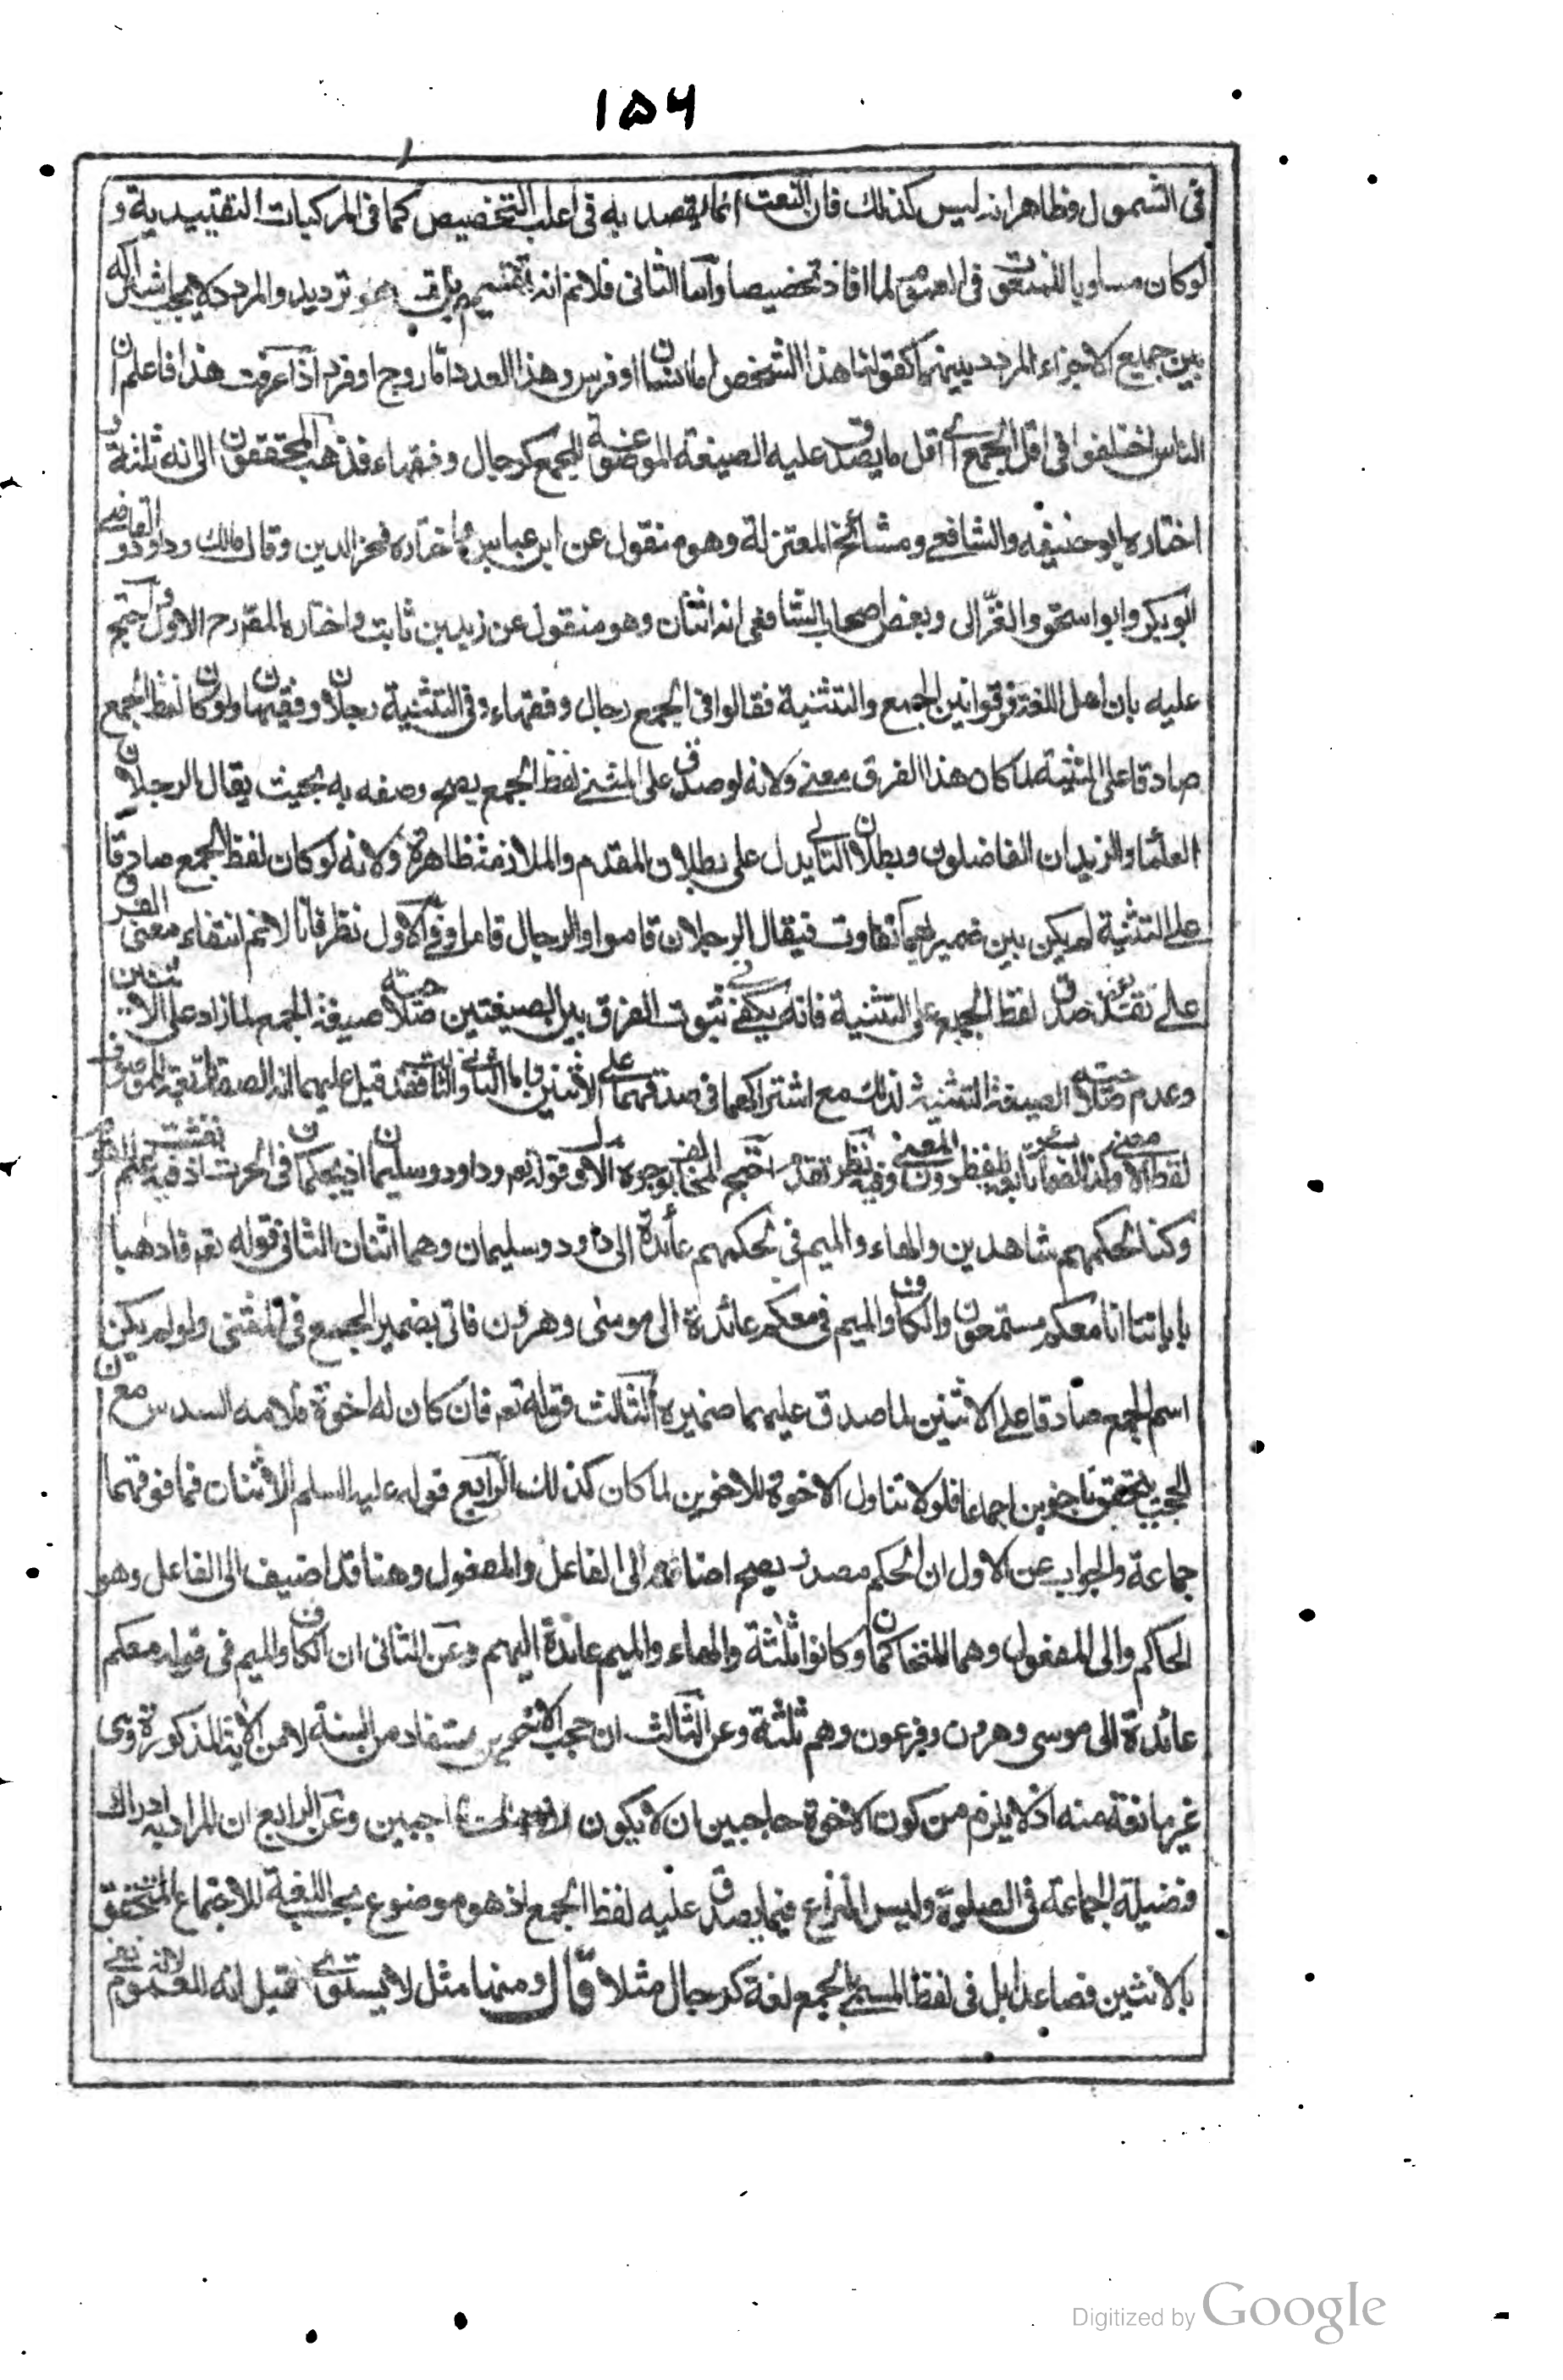 ١٥٦
في الشمول وظاهر انه ليس كذلك فان النعت انما يقصد به في اغلب التخصيص كما في المركبات التقييدية و
لو كان مساويا للمنعوت في العموم لما افاد تخصيصا واما الثاني فلانم انه تقسيم بل هو ترديد والمردد لا يجب اشتراكه
بين جميع الاجزاء المردد بينهما كقولنا هذا الشخص اما انسان او فرس وهذا العدد اما زوج او فرد اذا عرفت هذا فاعلم ان
الناس اختلفوا في اقل الجمع اي اقل ما يصدق عليه الصيغة الموضوعة للجمع كرجال وفقهاء فذهب المحققون الى انه ثلثة و
اختاره ابو حنيفه والشافعي ومشائخ المعتزلة وهو منقول عن ابن عباس واختاره فخر الدين وقال مالك وداود والقاضي
ابو بكر وابو اسحق والغزالي وبعض اصحاب الشافعي انه اثنان وهو منقول عن زيد بن ثابت واختاره المصّ رح الاول واحتج
عليه بان اهل اللغة فرقوا بين الجمع والتثنية فقالوا في الجمع رجال وفقهاء وفي التثنية رجلان وفقيهان ولو كان لفظ الجمع
صادقا على المثنية لما كان هذا الفرق معنى ولانه لو صدق على المثنى لفظ الجمع يصح وصفه به بحيث يقال الرجلان
العلماء والزيدان الفاضلون وبطلان التالي يدل على بطلان المقدم والملازمة ظاهرة ولانه لو كان لفظ الجمع صادقا
على التثنية لم يكن بين ضميريهما تفاوت فيقال الرجلان قاموا والرجال قاما وفي الاول نظر فانا لانم انتفاء معنى الفرق
على تقدير صدق لفظ الجمع على التثنية فانه يكفي في ثبوت الفرق بين الصيغتين صلاحية صيغة الجمع لما زاد على الاثنين
وعدم صلاحية الصيغة التثنية لذلك مع اشتراكهما في صدقهما على الاثنين واما الثاني والثالث فقد قيل عليهما ان الصفات تابعة للموصوف
لفظا لا معنى وكذا الضمائر تابعة للفظ دون المعنى وفيه نظر تقدم احتج المخالف بوجوه الاول قوله تعم وداود وسليمان اذ يحكمان في الحرث اذ نفشت فيه غنم القوم
وكنا لحكمهم شاهدين والهاء والميم في لحكمهم عائدة الى داود وسليمان وهما اثنان الثاني قوله تعم فاذهبا
باياتنا انا معكم مستمعون والكاف والميم في معكم عائدة الى موسى وهرون فاتى بضمير الجمع في المثنى ولو لم يكن
اسم الجمع صادقا على الاثنين لما صدق عليهما ضميره الثالث قوله تعم فان كان له اخوة فلامه السدس مع ان
الحجب يتحقق باخوين اجماعا فلولا تناول الاخوة للاخوين لما كان كذلك الرابع قوله عليه السلم الاثنان فما فوقهما
جماعة والجواب عن الاول ان الحكم مصدر يصح اضافته الى الفاعل والمفعول وهنا قد اضيف الى الفاعل وهو
الحاكم والى المفعول وهما المتحاكمان وكانوا ثلثة والهاء والميم عائدة اليهم وعن الثاني ان الكاف والميم في قوله معكم
عائدة الى موسى وهرون وفرعون وهم ثلثة وعن الثالث ان حجب الاخوين مستفاد من السنة لا من الاية المذكورة وهي
غير مانعة منه اذ لا يلزم من كون الاخوة حاجبين ان لا يكون الاخوان حاجبين وعن الرابع ان المراد به ادراك
فضيلة الجماعة في الصلوة وليس النزاع فيما يصدق عليه لفظ الجمع اذ هو موضوع بحسب اللغة للاجتماع المتحقق
بالاثنين فصاعدا بل في لفظ المسمى بالجمع لغة كرجال مثلا قال ومنها مثل لا يستوي فقيل انه للعموم لانه نفي
Digitized by Google